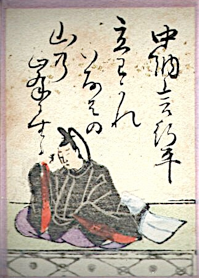 中納言行平
立わかれ
いなはの
山乃
峯に生る